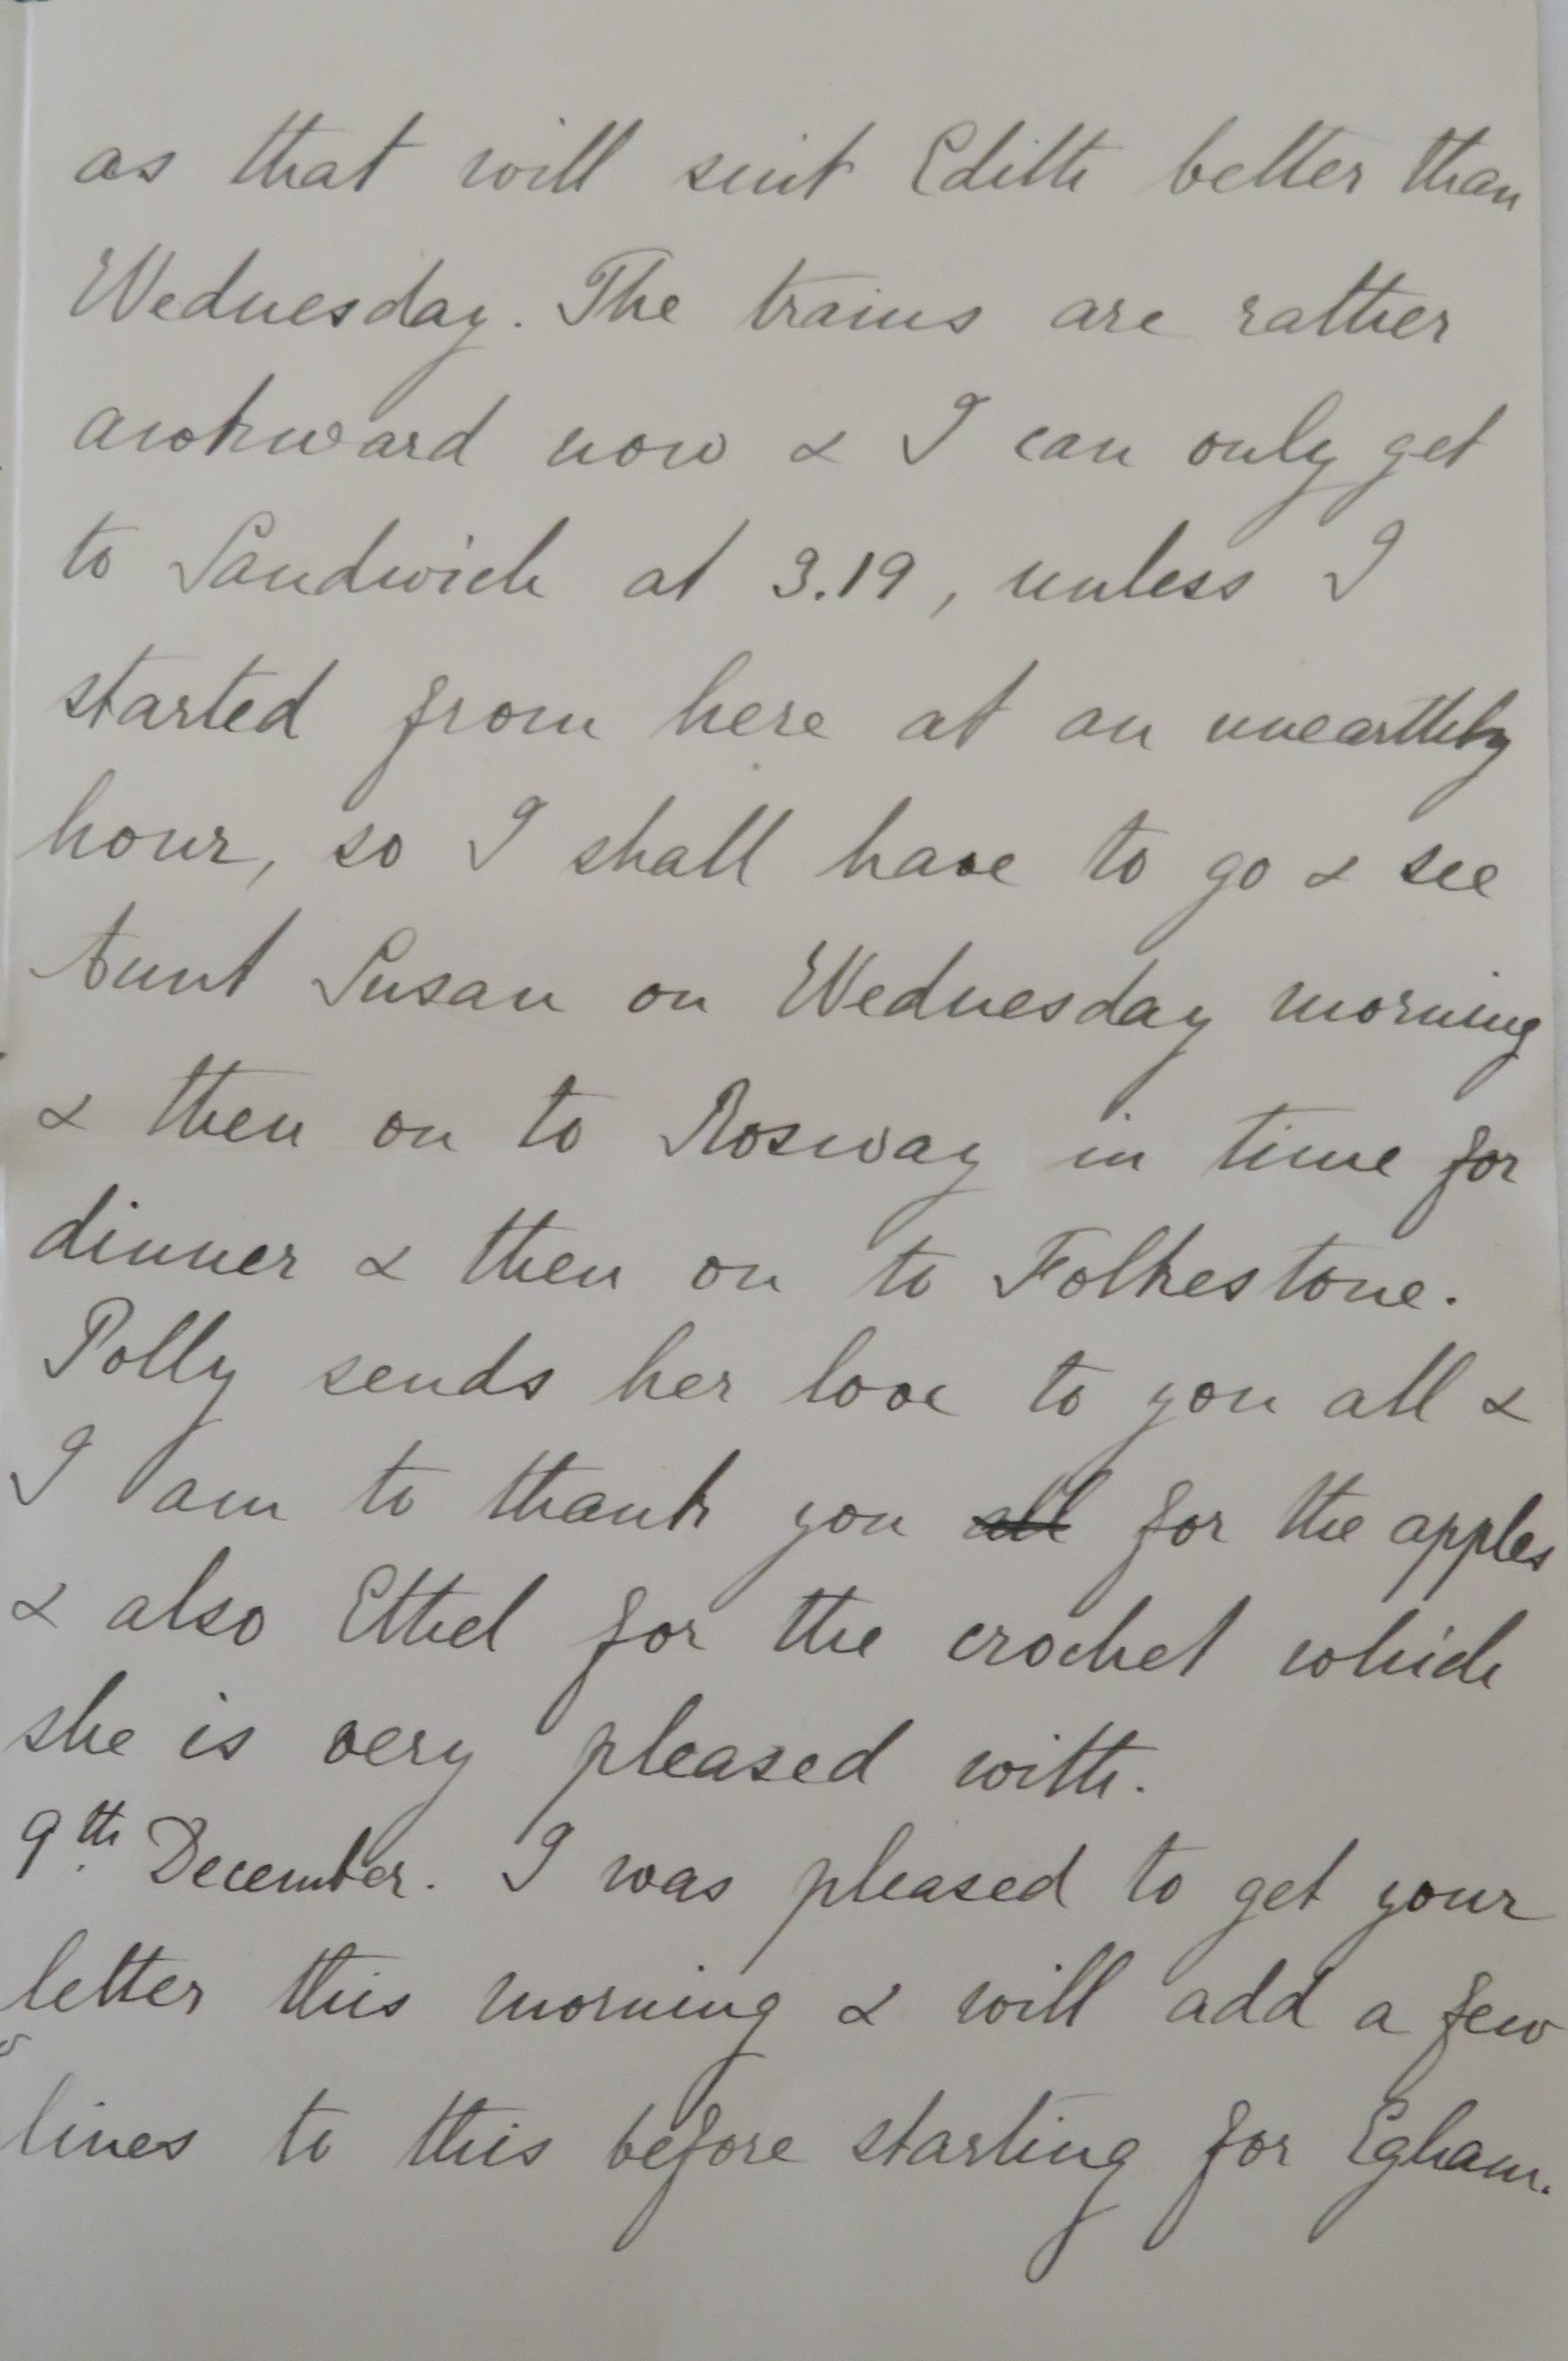 as that will suit Edith better than
Wednesday. The trains are rather
awkward now & I can only get
to Sandwich at 3.19, unless I
started from here at an unearthly
hour, so I shall have to go & see
Aunt Susan on Wednesday morning
& then on to Rosway in time for
dinner & then on to Folkestone.
Polly sends her love to you all &
I am to thank you all for the apples
& also Ethel for the crochet which
she is very pleased with.
9th December. I was pleased to get your
letter this morning & will add a few
lines to this before starting for Egham.